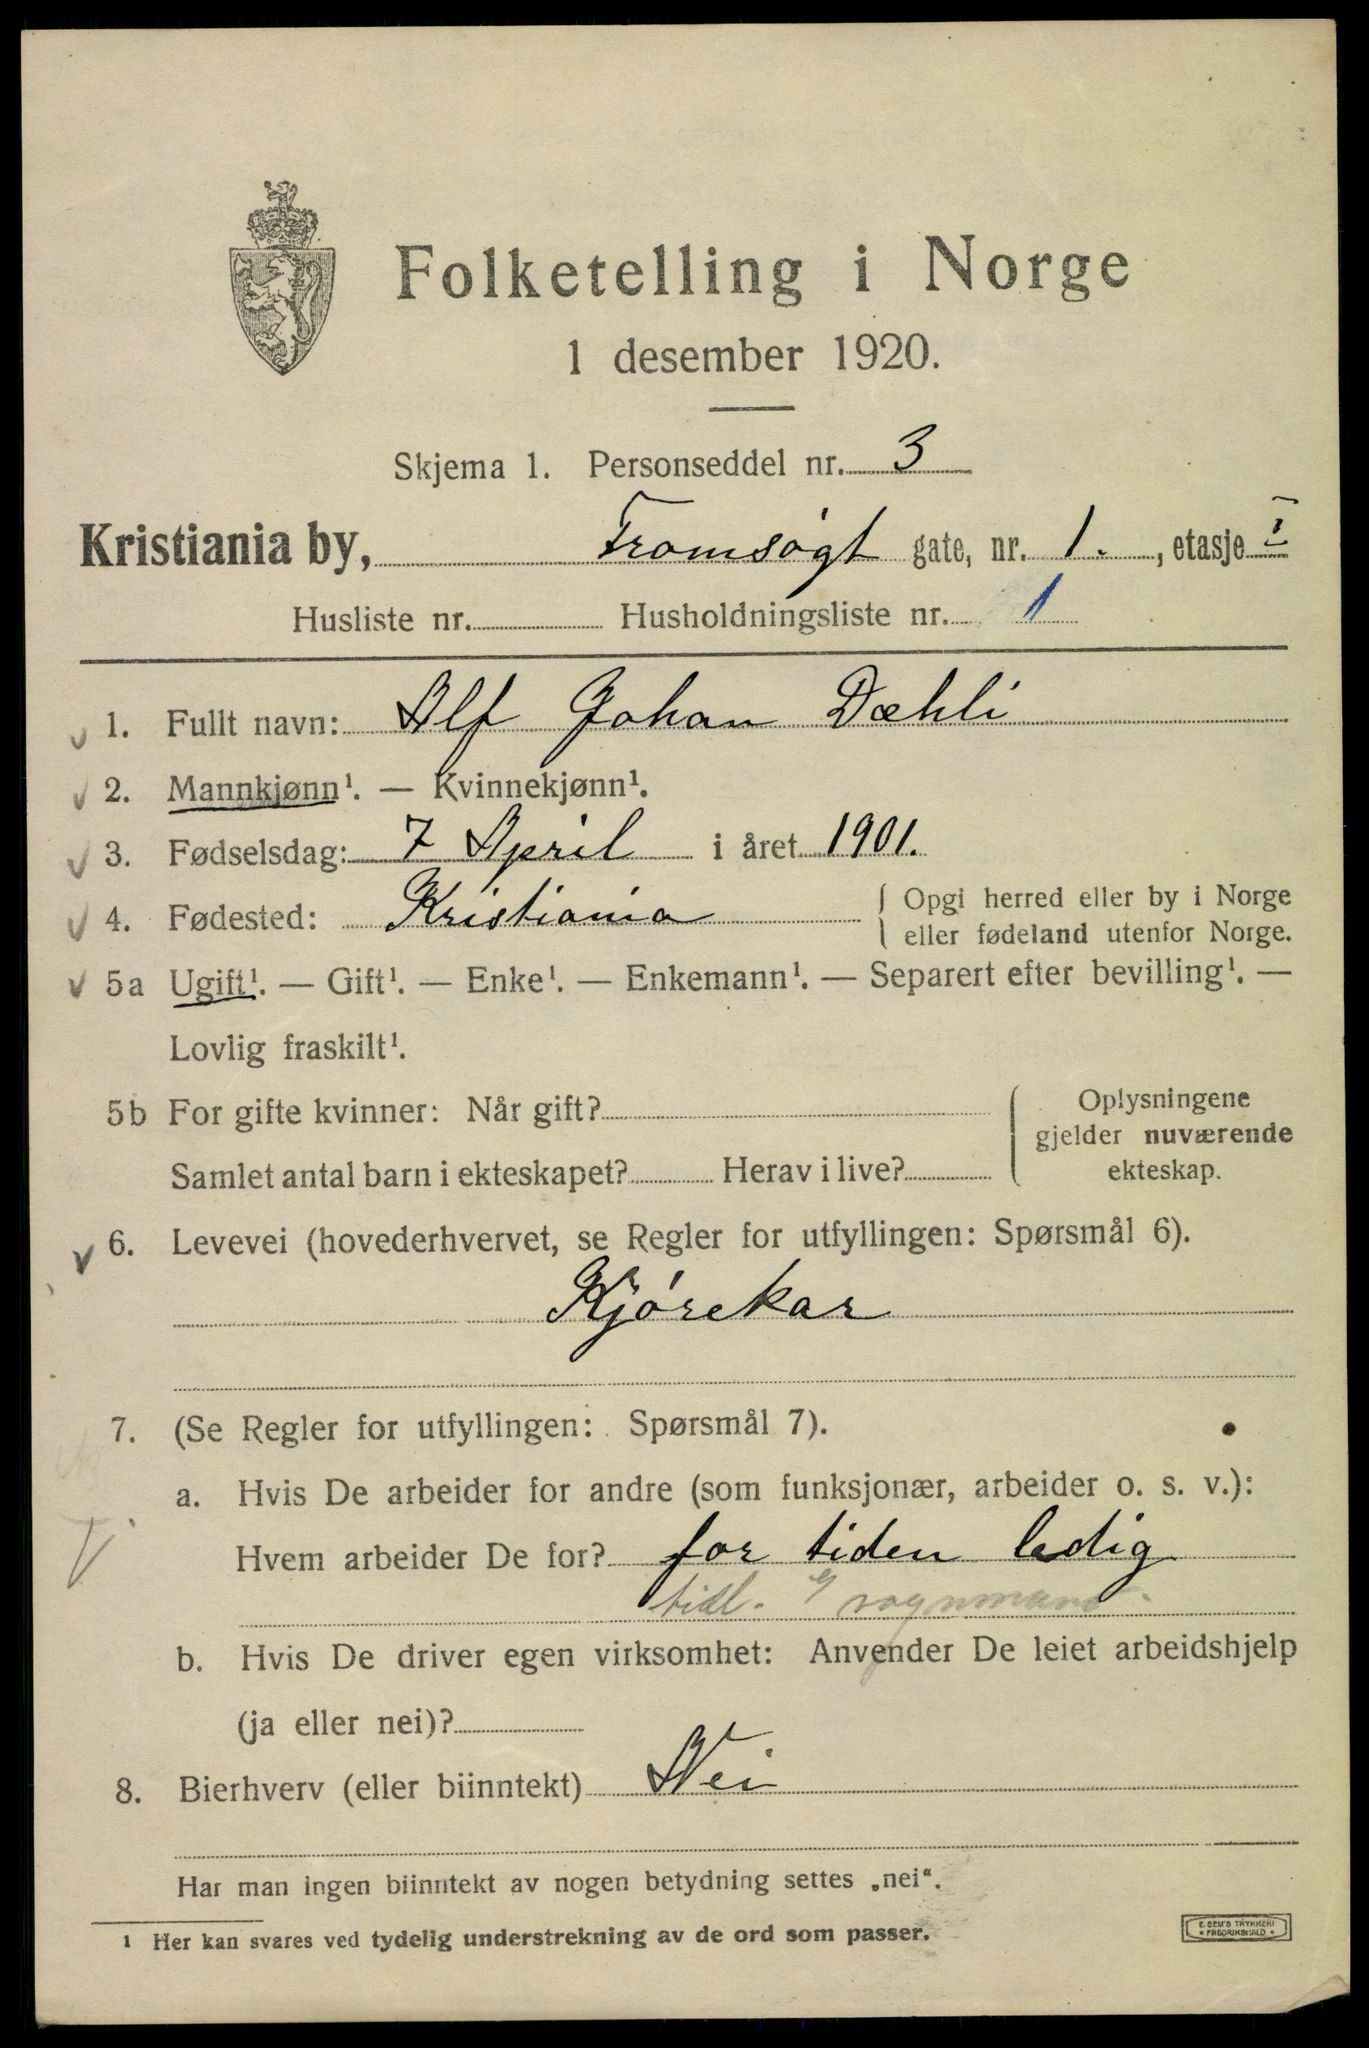 Folketelling i Norge
1 desember 1920.
Skjema 1. Personseddel nr. 3
Kristiania by, Tromsøgt gate, nr. 1. , etasje I
Husliste nr. Husholdningsliste nr. 1
1. Fullt navn: Alf Johan Dæhli
2. Mannkjønn¹. — Kvinnekjønn¹.
3. Fødselsdag: 7 April i året 1901.
4. Fødested: Kristiania { Opgi herred eller by i Norge
eller fødeland utenfor Norge.
5a Ugift¹. — Gift¹. — Enke¹. — Enkemann¹. — Separert efter bevilling¹. —
Lovlig fraskilt¹.
5b For gifte kvinner: Når gift? { Oplysningene
gjelder nuværende
Samlet antal barn i ekteskapet? Herav i live? ekteskap.
6. Levevei (hovederhvervet, se Regler for utfyllingen: Spørsmål 6).
Kjørekar
7. (Se Regler for utfyllingen: Spørsmål 7).
a. Hvis De arbeider for andre (som funksjonær, arbeider o. s. v.):
Hvem arbeider De for? for tiden ledig
tidl. vognmann
b. Hvis De driver egen virksomhet: Anvender De leiet arbeidshjelp
(ja eller nei)?
8. Bierhverv (eller biinntekt) Nei
Har man ingen biinntekt av nogen betydning settes „nei“.
1 Her kan svares ved tydelig understrekning av de ord som passer.
E. SEM'S TRYKKERI
* FREDRIKSHALD *